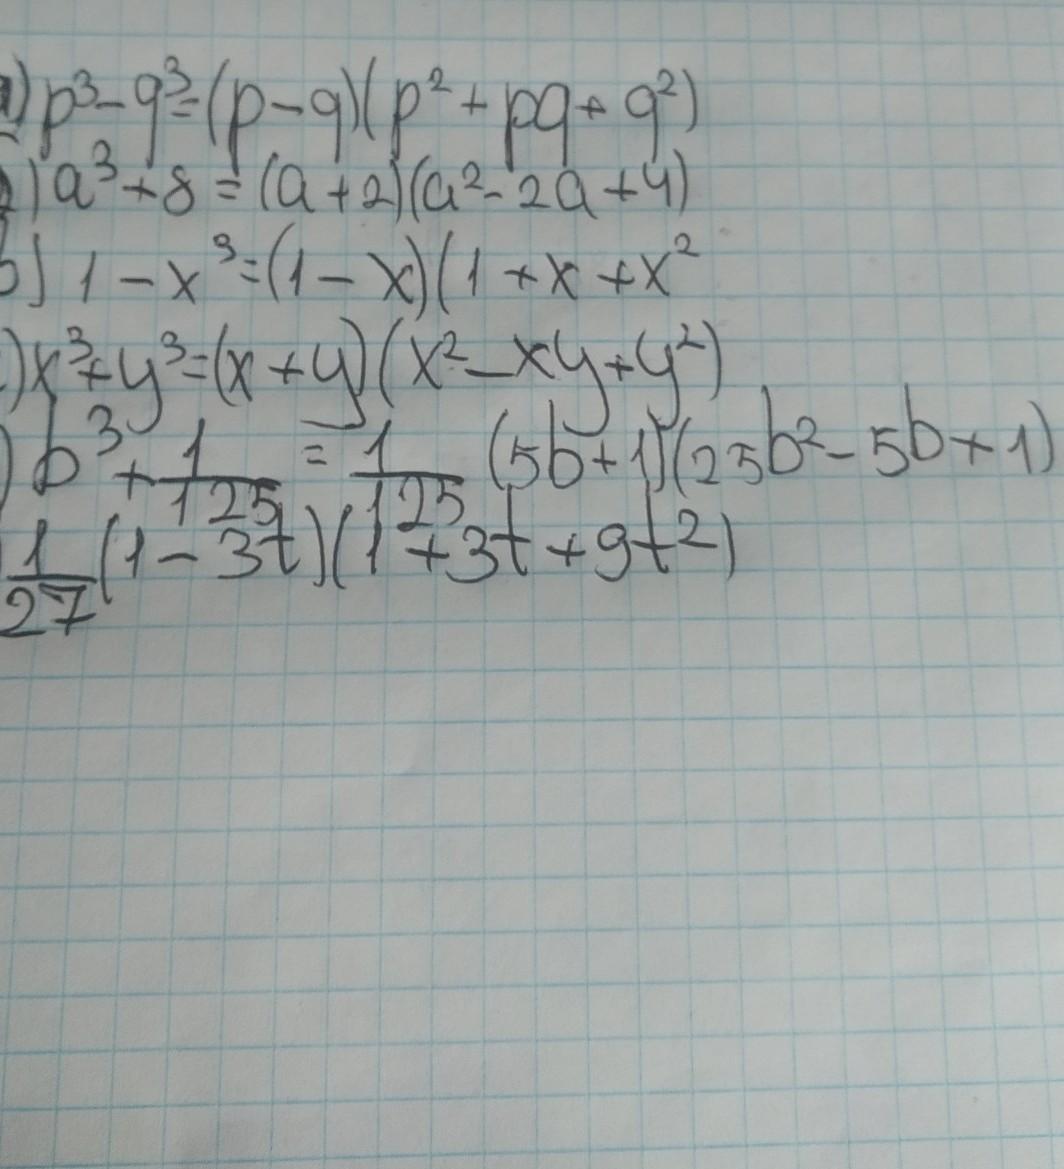 ) p³-q³=(p-q)(p²+pq+q²)
) a³+8=(a+2)(a²-2a+4)
) 1-x³=(1-x)(1+x+x²
) x³+y³=(x+y)(x²-xy+y²)
) b³+1/125=1/125 (5b+1)(25b²-5b+1)
1/27(1-3t)(1+3t+9t²)